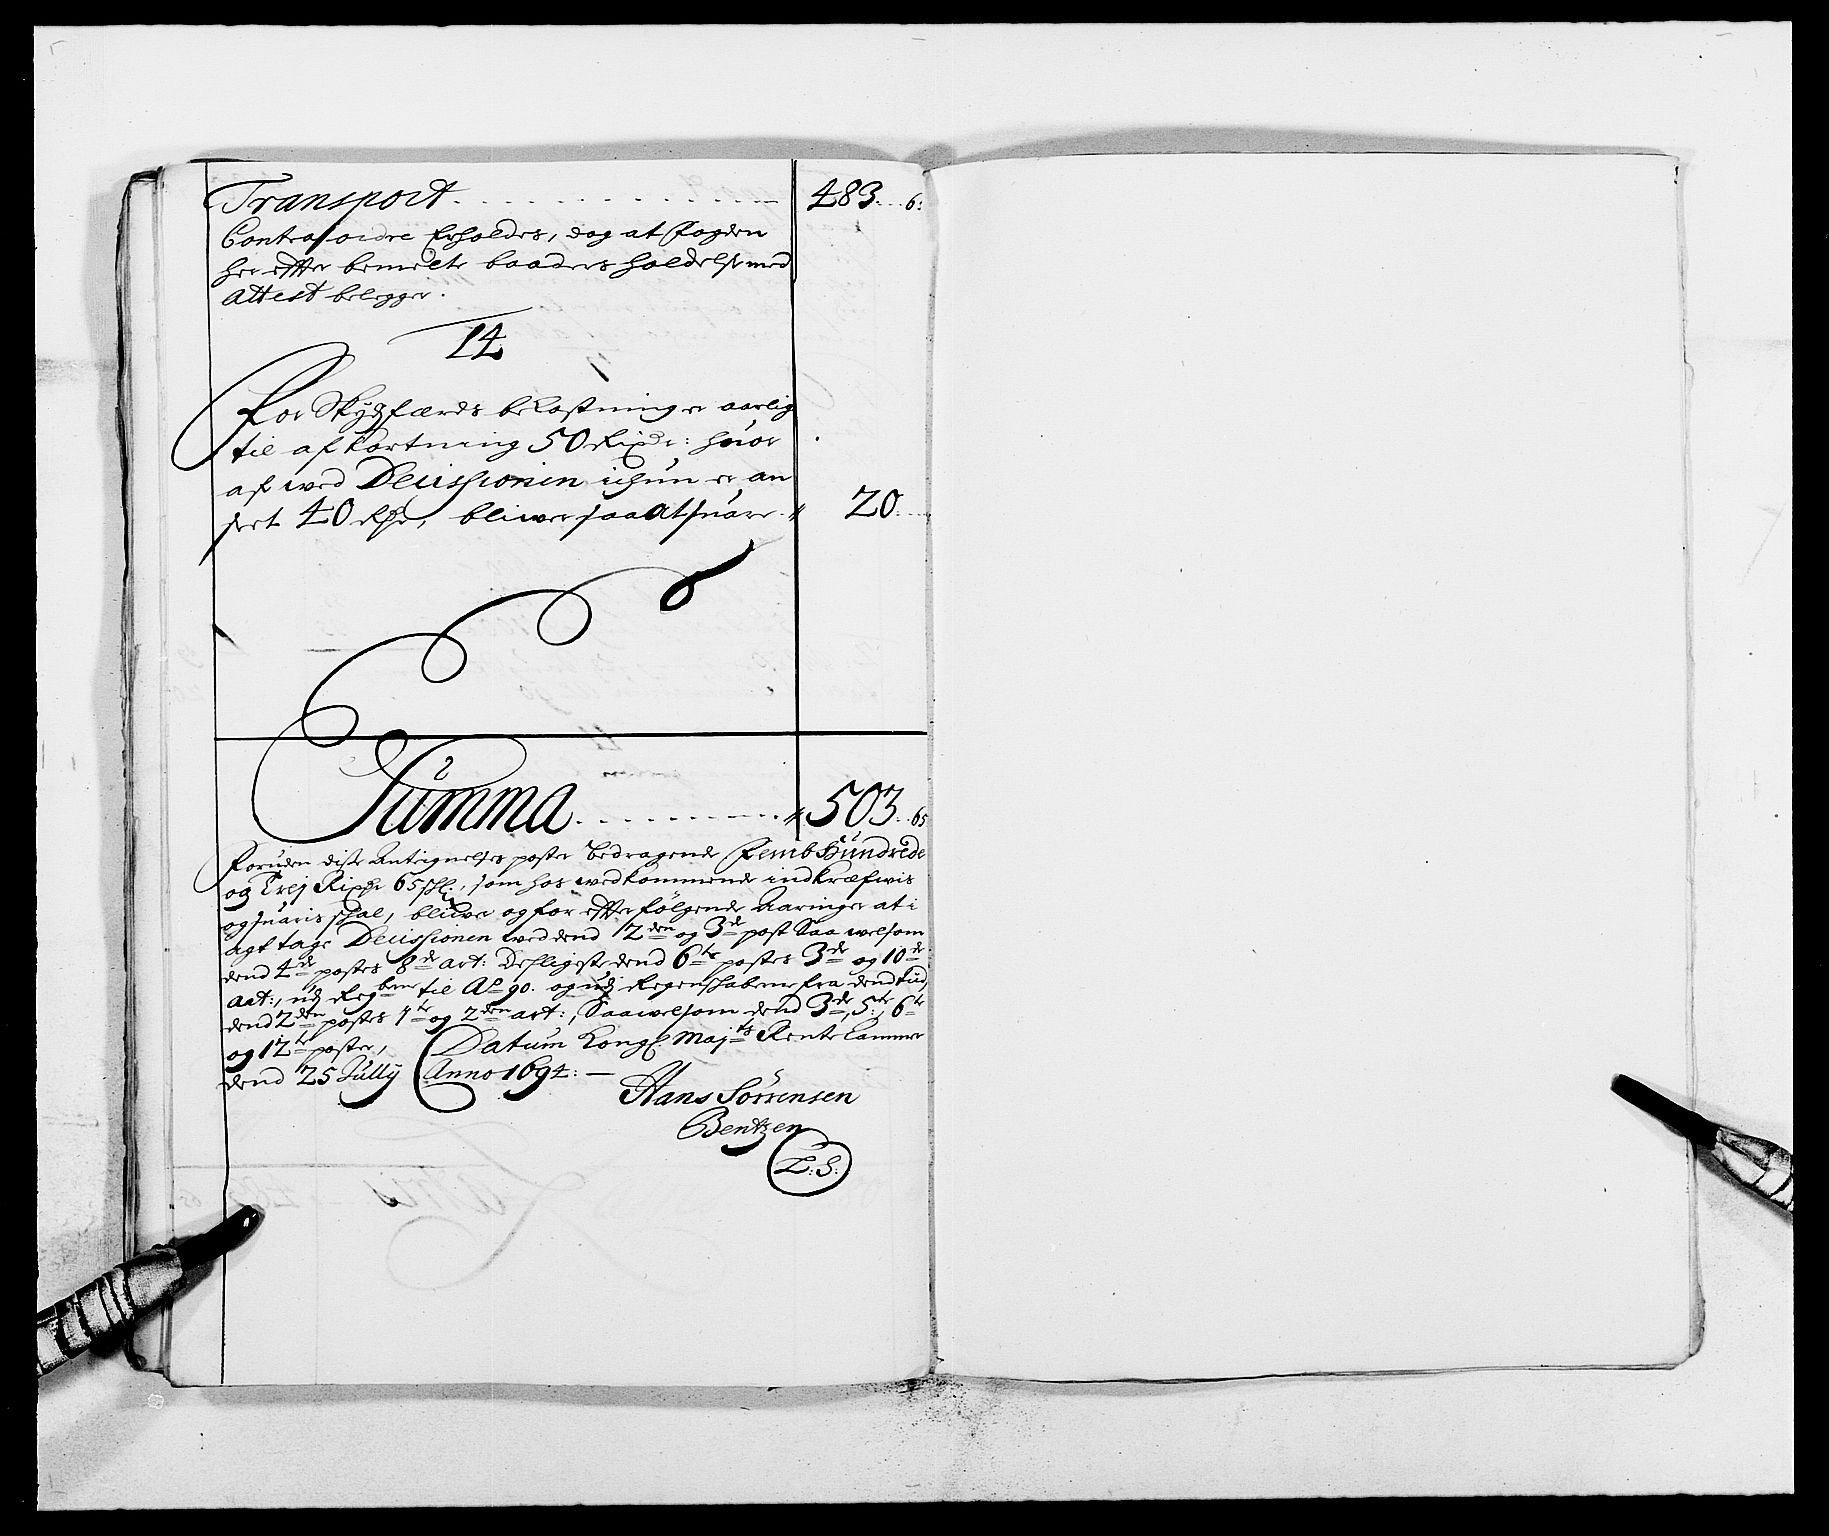 Transport . . . . . . . . . . . . 483 . . 6 :
Contrasordre Erholdes, dog at fogden
her effter bemelte baaders holdelse med
Attest belegger.
14
For Skydzfærds bekostning er aarlig
til afkortning 50 Rixdr: huor
af wed Decissionen ichun er an
sert 40 Rdr, bliwer saa at suare . 20 . .
Summa . . . . . . . . . 503 . . 65
Foruden disse Antegnelses poster bedragende Femb Hundrede
og Trej Rixdr 65 sk:, som hos wedkommende indkræfwis
og suaris schal, bliwer og for effterfølgende Aaringer at i
agt tage Decissionen wed dend 2den og 3de post Saa welsom
dend 4de postes 8de art: Desligeste dend 6te postes 3de og 10de
art:, udj Regnsberne til Ao 90. og udj Regenschaberne fra dend tiid,
dend 2den postes 1te og 2den art:, Saawelsom dend 3de, 5te, 6te
og 12te poster, Datum Kongl. Majts Rente Cammer
dend 25 Jully Anno 1694: —
Hans Sørrensen
Bentzen
L: S: